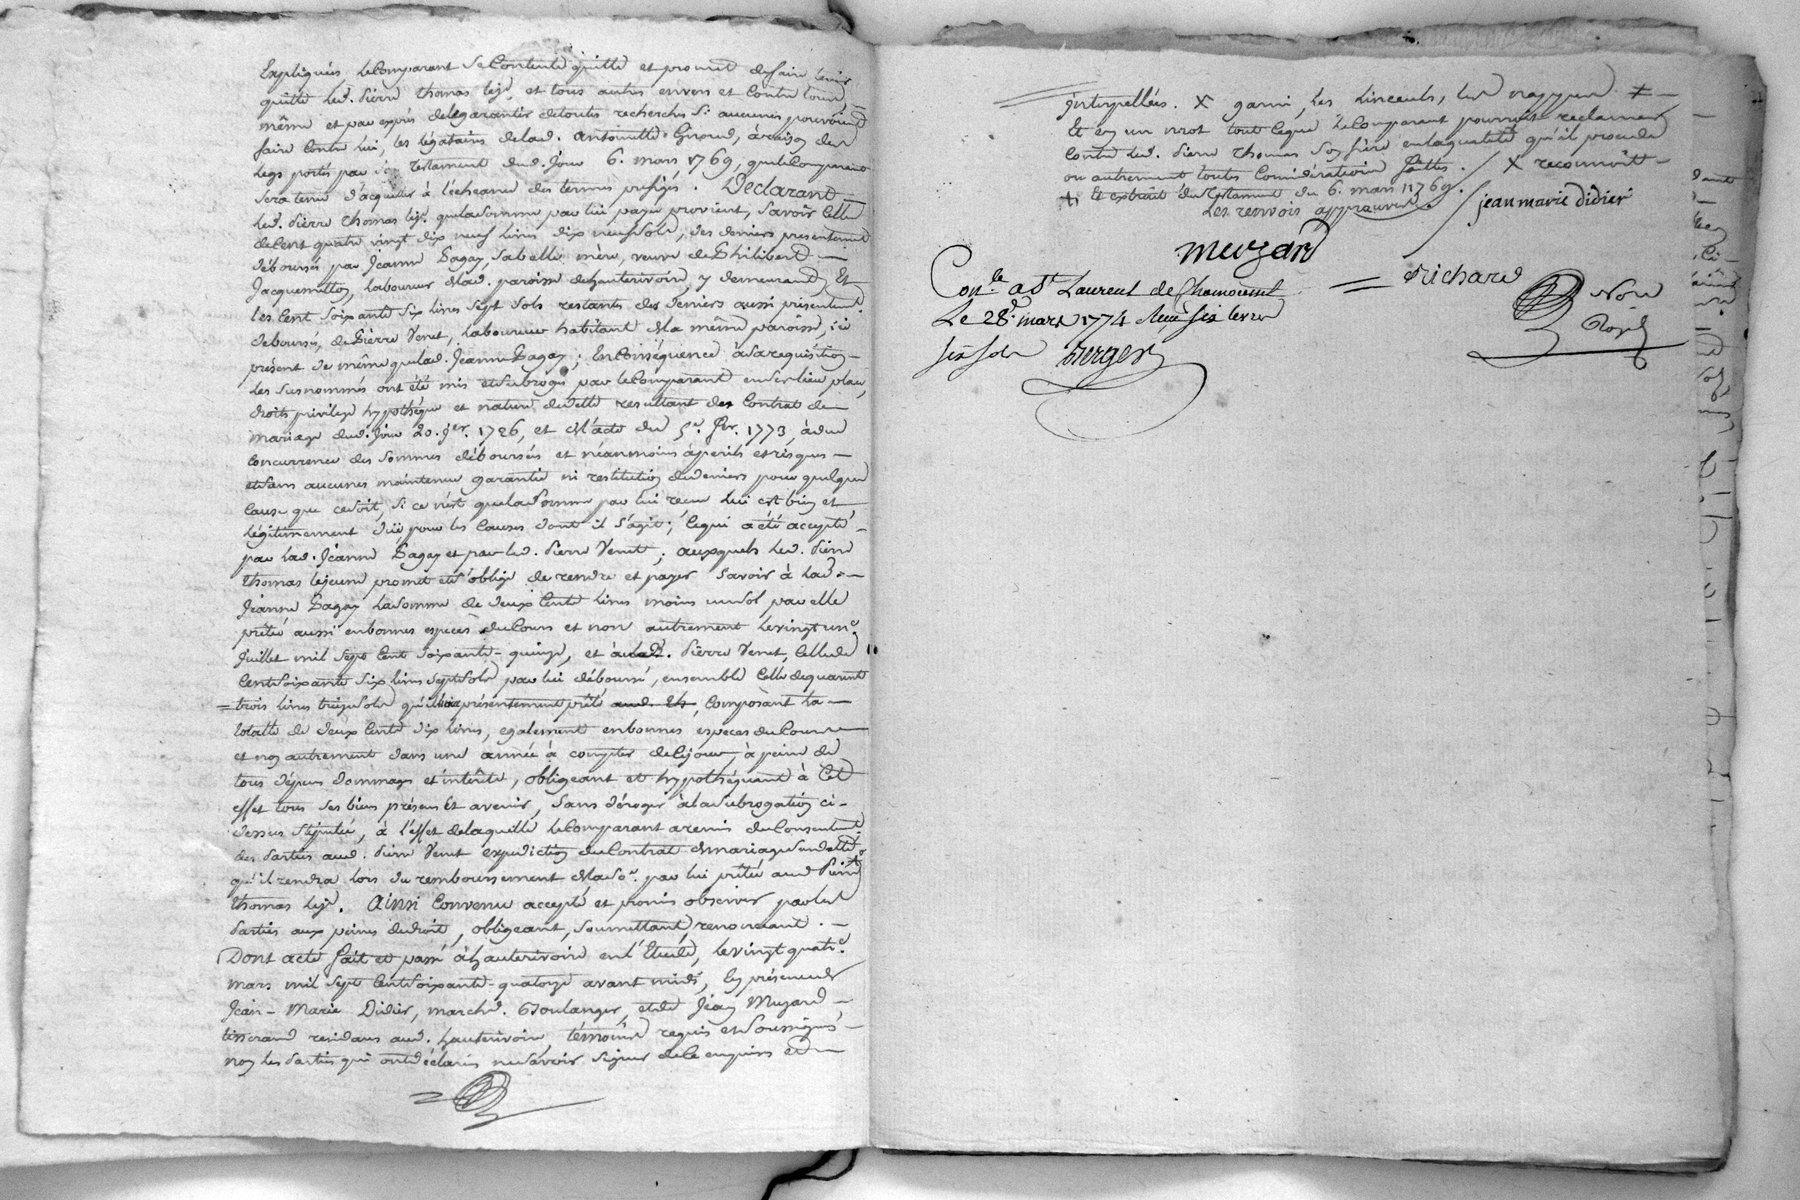 Expliqués, le Comparant Se Contente quitte et promet de faire tenir
quitte led. Pierre Thomas lejne. et tous autres envers et Contre tous,
même et par exprés de le garantir de toutes recherches Si aucunes pouvoient
faire Contre lui, les légataires de lad. Antoinette Giroud, à raison des
legs portés par son testament dud. jour 6. mars 1769, que le Comparant
Sera tenu d'acquitter à l'échéance des termes prefigés. Declarant
led. Pierre Thomas lejne. que la Somme par lui payée provient, Savoir Celle
de Cent quatre vingt dix neuf livres dix neuf sols, des deniers presentement
déboursés par Jeanne Pagay, Sa belle mère, veuve de Philibert
Jacquemetton, laboureur de lad. paroisse de hauterivoire, y demeurant, Et
les Cent Soixante Six livres Sept Sols restants des deniers aussi présentemt.
deboursés, de Pierre Venet, laboureur habitant de la même paroisse, ici
présent de même que lad. Jeanne Pagay; En Conséquence à Sa requisition
les Susnommés ont été mis et Subrogés par le Comparant en Ses lieu, place,
droits, privilege hypothéque et nature de dette résultant des Contrat de
mariage dud. jour 20. jer. 1726, et de l'acte du 5e. fbr. 1773, à due
Concurrence des Sommes déboursées et néanmoins à perils et risques
et Sans aucunes maintenue garantie ni restitution de deniers pour quelque
Cause que ce Soit, Si ce n'est que la Somme par lui reçue lui est bien et
légitimement düe pour les Causes dont il S'agit; Ce qui a été accepté
par lad. Jeanne Pagay et par led. Pierre Venet; auxquels led. Pierre
Thomas lejeune promet et S'oblige de rendre et payer Savoir à lad.
Jeanne Pagay la Somme de deux Cents livres moins un Sol par elle
prêtée aussi en bonnes especes du Cours et non autrement le vingt un e.
Juillet mil Sept Cent Soixante-quinze, et aud. Pierre Venet, Celle de
Cent Soixante Six livres Sept Sols par lui déboursé, ensemble Celle de quarante
trois livres treize Sols qu'il lui a présentement prêté, Composant la
totalle de deux Cents dix livres, également en bonnes especes du Cours
et non autrement dans une année à compter de Ce jour, à peine de
tous dépens dommages et intérêts, obligeant et hypothéquant à Cet
effet tous Ses biens présens Et avenir, Sans déroger à la Subrogation ci-
dessus Stipulée, à l'effet de laquelle le Comparant a remis du Consentemt.
des Parties aud. Pierre Venet expedition du Contrat de mariage Susdatté
qu'il rendra lors du remboursement de la Soe. par lui prêtée aud Pierre
Thomas lejne. Ainsi Convenu accepté et promis observer par les
Parties aux peines de droit, obligeant, Soumettant, renonciant.
Dont acte fait et passé à hauterivoire en l'Etude, le vingt quatre.
mars mil Sept Cent Soixante-quatorze avant midi, En présence de
Jean-Marie Didier, marchd. Boulanger, et de Jean Muzard
tisserand residans aud. hauterivoire, témoins requis et Soussignés
non les Parties qui ont déclarés ne Savoir Signer de ce enquises et
interpellées. X garni, les linceuls, les nappes ≠
Et en un mot tout ce que le Comparant pourroit reclamer
Contre led. Pierre Thomas Son frère en la qualité qu'il procede
ou autrement toutes Considérations faittes. X reconnoît
≠ Et extrait du testament du 6. mars 1769.
Les renvois approuvés. jean marie didier
Muzard
Richard
Nore
Royal
Con.le a St Laurent de Chamousset
Le 28e. mars 1774 Reçu Six livres
Six Sols Berger